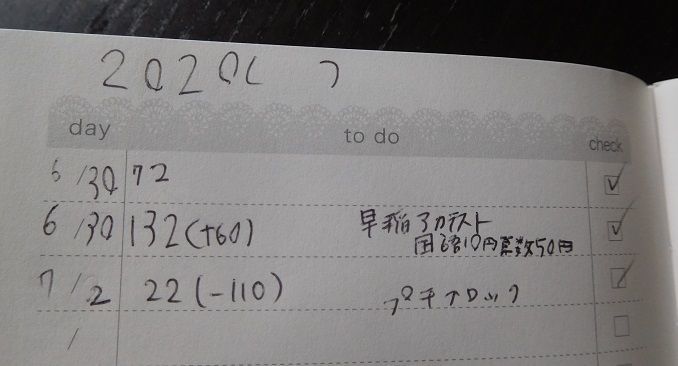 2020(
day to do check
6/30 72
6/30 132(+60) 早稲アカテスト
国語10円算数50円
7/2 22(-110) プチブロック
/